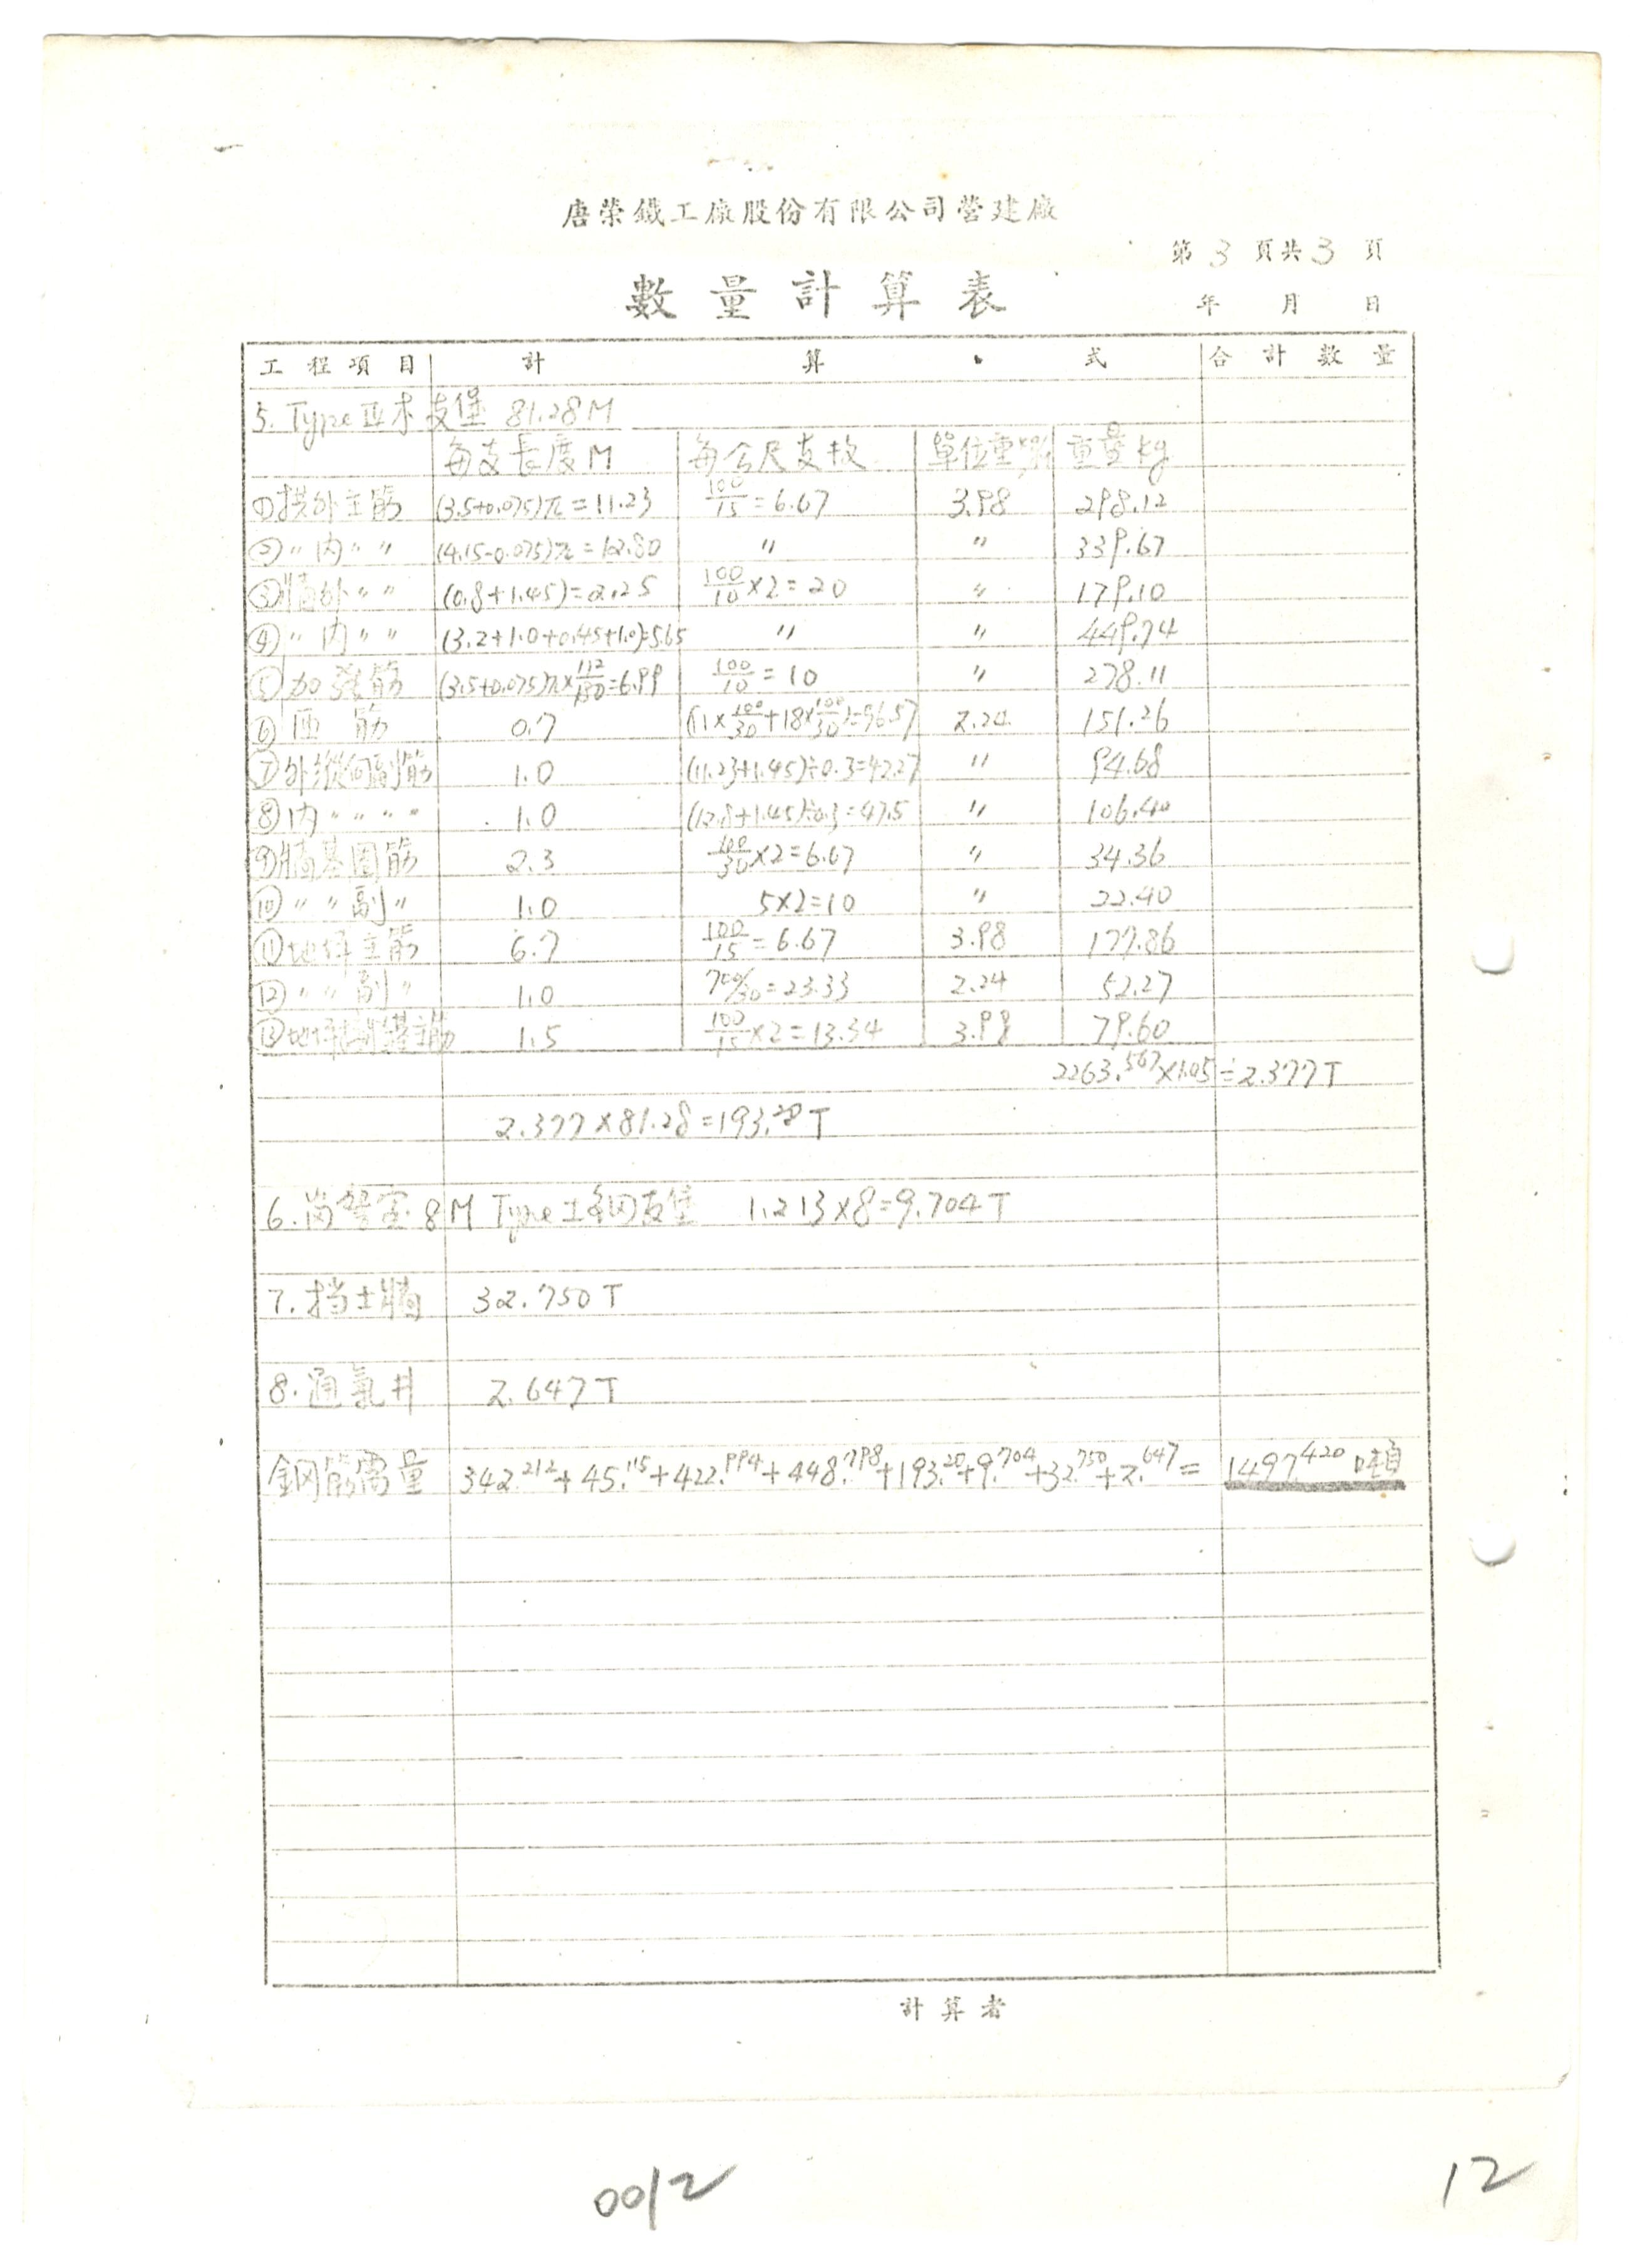 唐榮鐵工廠股份有限公司營建廠
第 3 頁共 3 頁
數量計算表
年 月 日
工程項目 計 算 式 合計數量
5. Type Ⅲ木支堡 81.28M
每支長度M 每公尺支枚 單位重 重量kg
①拱外主筋 (3.5+0.075)π=11.23 100/15=6.67 3.98 298.12
②〃內〃〃 (4.15-0.075)π=12.80 〃 〃 339.67
③牆外〃〃 (0.8+1.45)=2.25 100/10×2=20 〃 179.10
④〃內〃〃 (3.2+1.0+0.45+1.0)=5.65 〃 〃 449.74
⑤加強筋 (3.5+0.075)π×112/180=6.99 100/10=10 〃 278.11
⑥ 筋 0.7 (11×100/30+18×100/30)=96.57 2.24 151.26
⑦外縱向副筋 1.0 (11.23+1.45)÷0.3=42.27 〃 94.68
⑧內〃〃〃〃 1.0 (12.8+1.45)÷0.3=47.5 〃 106.40
⑨牆基固筋 2.3 100/30×2=6.67 〃 34.36
⑩〃〃副〃 1.0 5×2=10 〃 22.40
⑪地坪主筋 6.7 100/15=6.67 3.98 177.86
⑫〃〃副〃 1.0 700/30=23.33 2.24 52.27
⑬地坪 主筋 1.5 100/15×2=13.34 3.98 79.60
2263.567×1.05≒2.377T
2.377×81.28=193.20T
6. 崗警室 8M Type 鋼支堡 1.213×8=9.704T
7. 挡土牆 32.750T
8. 通氣井 2.647T
鋼筋需量 342.212+45.115+422.994+448.798+193.20+9.704+32.750+2.647= 1497.420 噸
計算者
0012
12